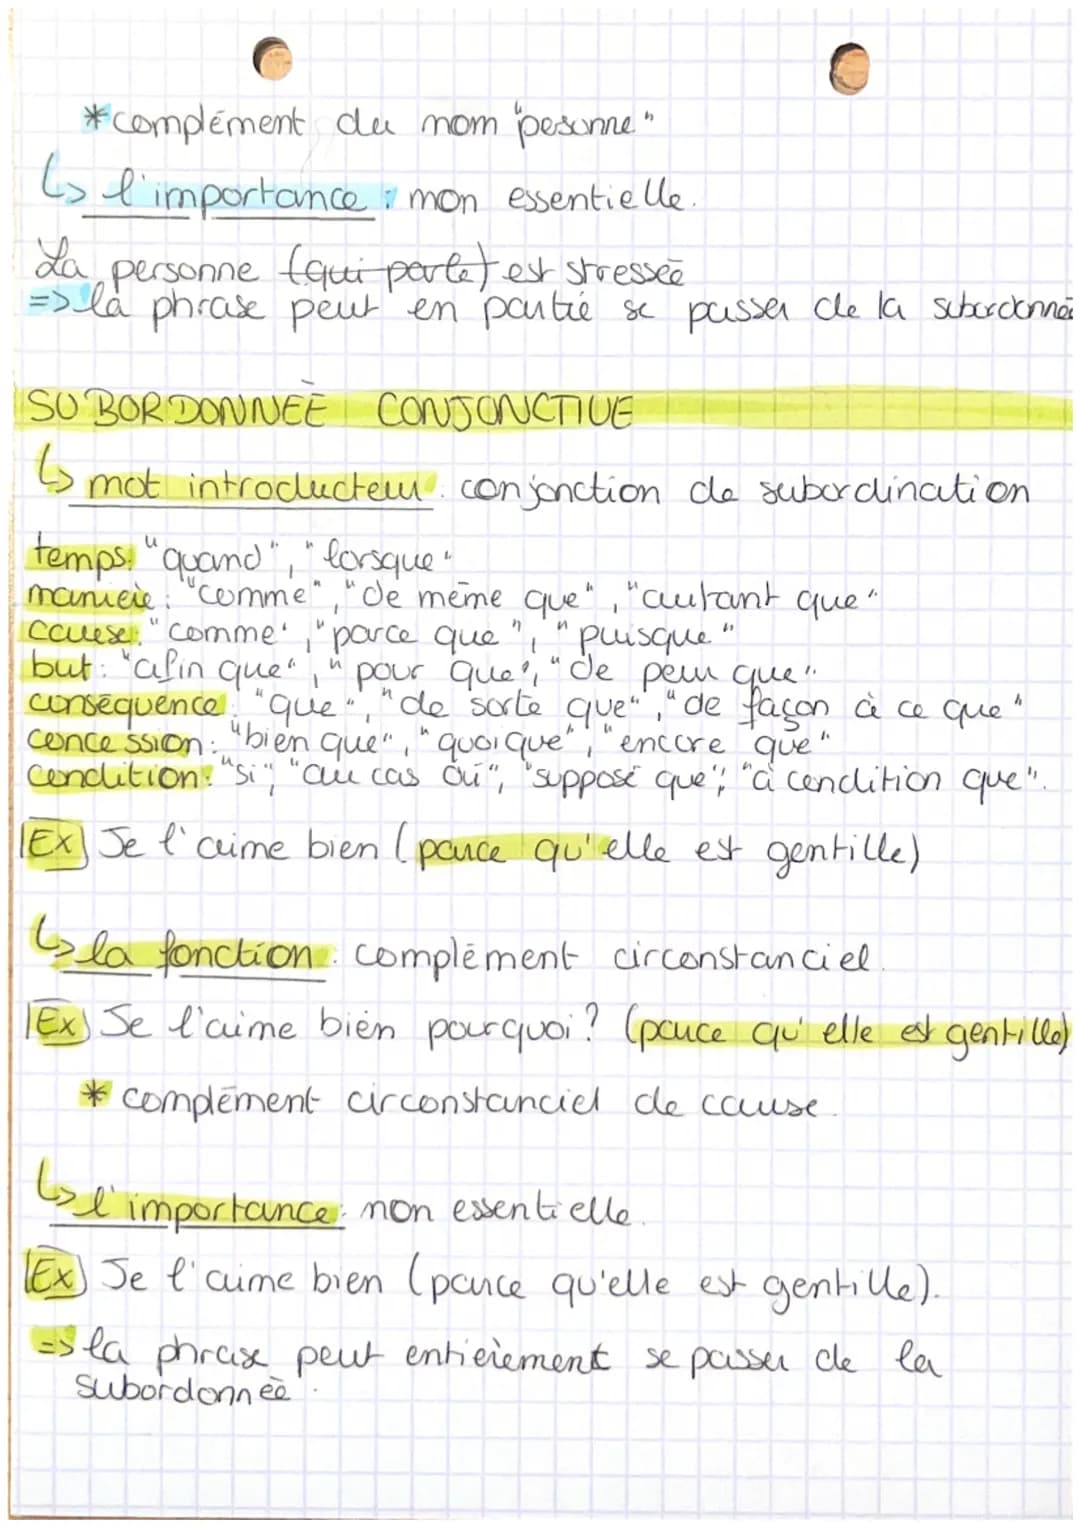 *complément du nom "pesonne"
↳ l'importance : non essentielle.
La personne (qui parle) est stressée
=> la phrase peut en partie se passer de la subordonnée
SUBORDONNÉE CONJONCTIVE
↳ mot introducteur : conjonction de subordination
temps: "quand", "lorsque"
manière: "comme", "de même que", "autant que"
cause: "comme", "parce que", "puisque"
but: "afin que", "pour que", "de peur que".
conséquence: "que", "de sorte que", "de façon à ce que"
concession: "bien que", "quoique", "encore que"
condition: "si", "au cas où", "supposé que", "à condition que".
Ex) Je l'aime bien (parce qu'elle est gentille)
↳ la fonction : complément circonstanciel.
Ex) Je l'aime bien pourquoi? (parce qu'elle est gentille)
* complément circonstanciel de cause.
↳ l'importance: non essentielle.
Ex) Je l'aime bien (parce qu'elle est gentille).
=> la phrase peut entièrement se passer de la
subordonnée.